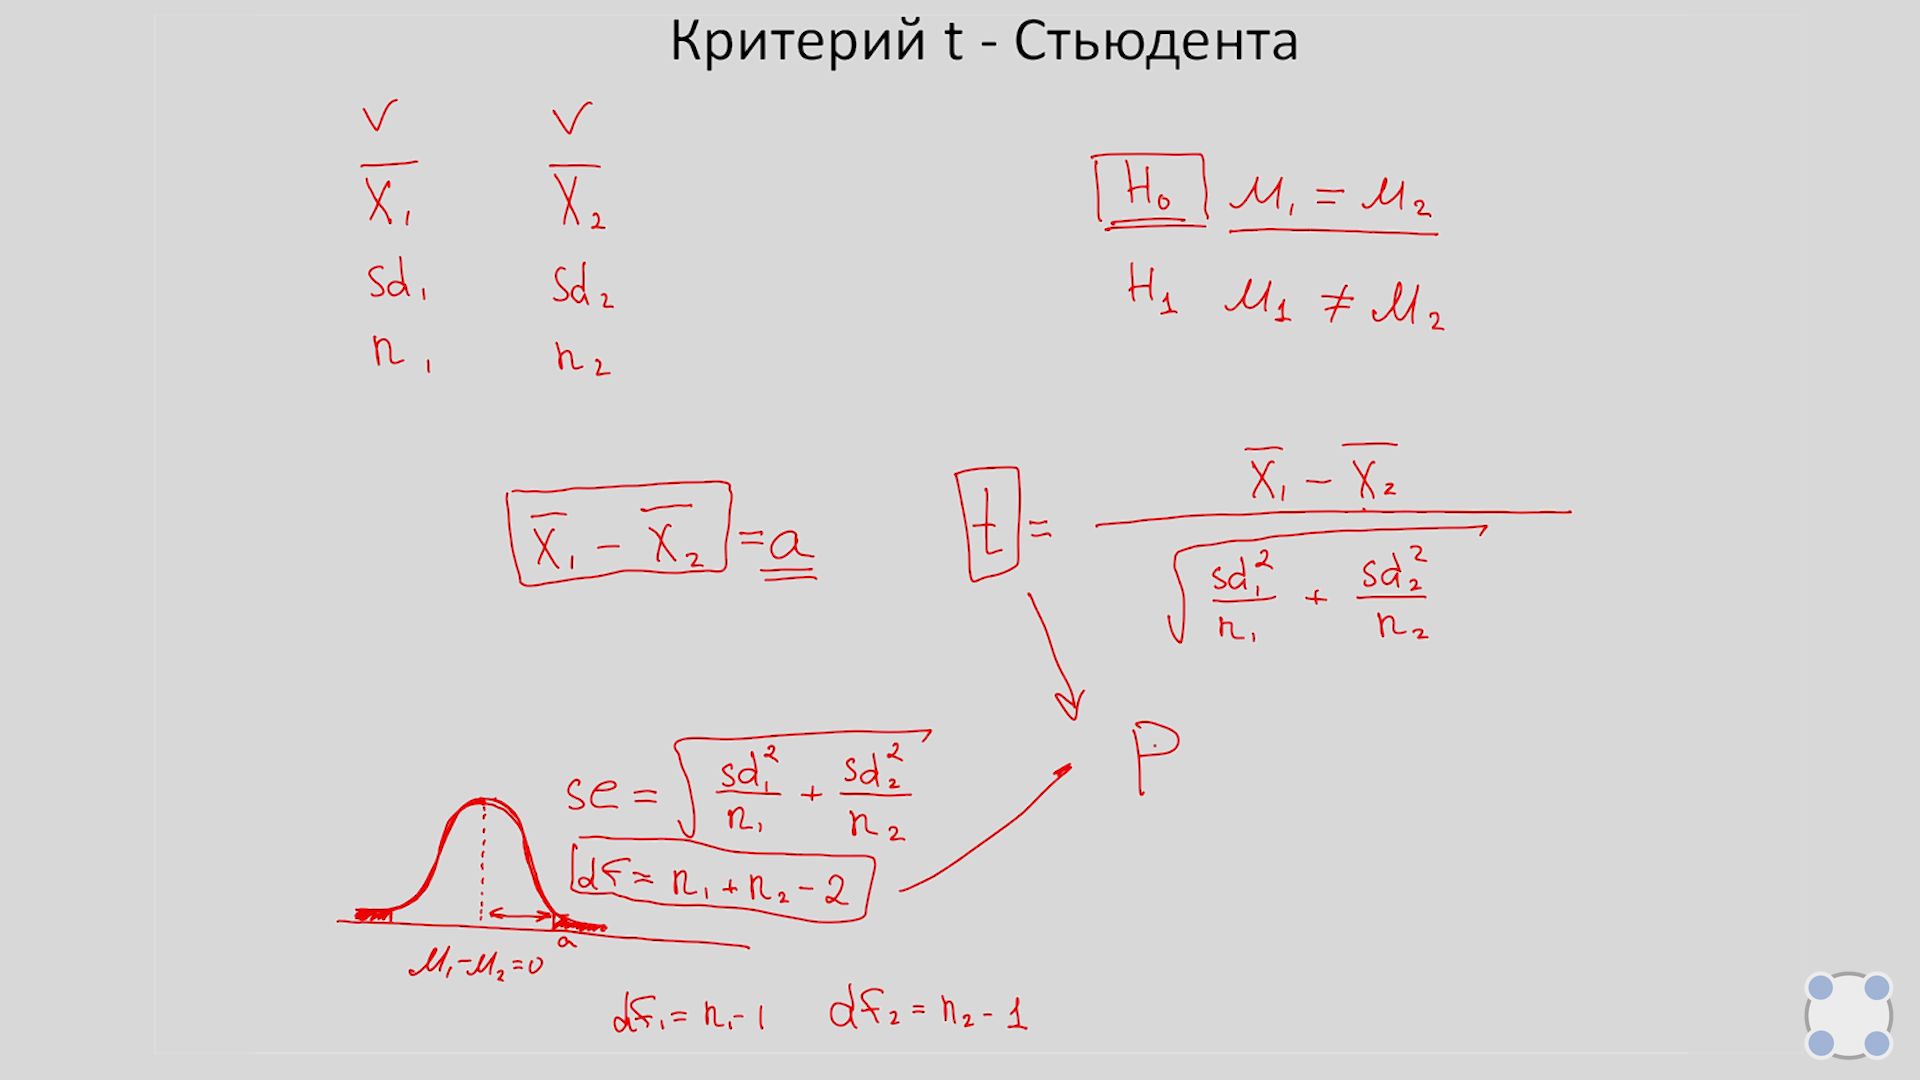 Критерий t - Стьюдента
V V
X̅₁ X̅₂
sd₁ sd₂
n₁ n₂
H₀ M₁ = M₂
H₁ M₁ ≠ M₂
X̅₁ - X̅₂ = a
t = (X̅₁ - X̅₂) / √(sd₁²/n₁ + sd₂²/n₂)
P
se = √(sd₁²/n₁ + sd₂²/n₂)
df = n₁ + n₂ - 2
a
M₁ - M₂ = 0
df₁ = n₁ - 1 df₂ = n₂ - 1